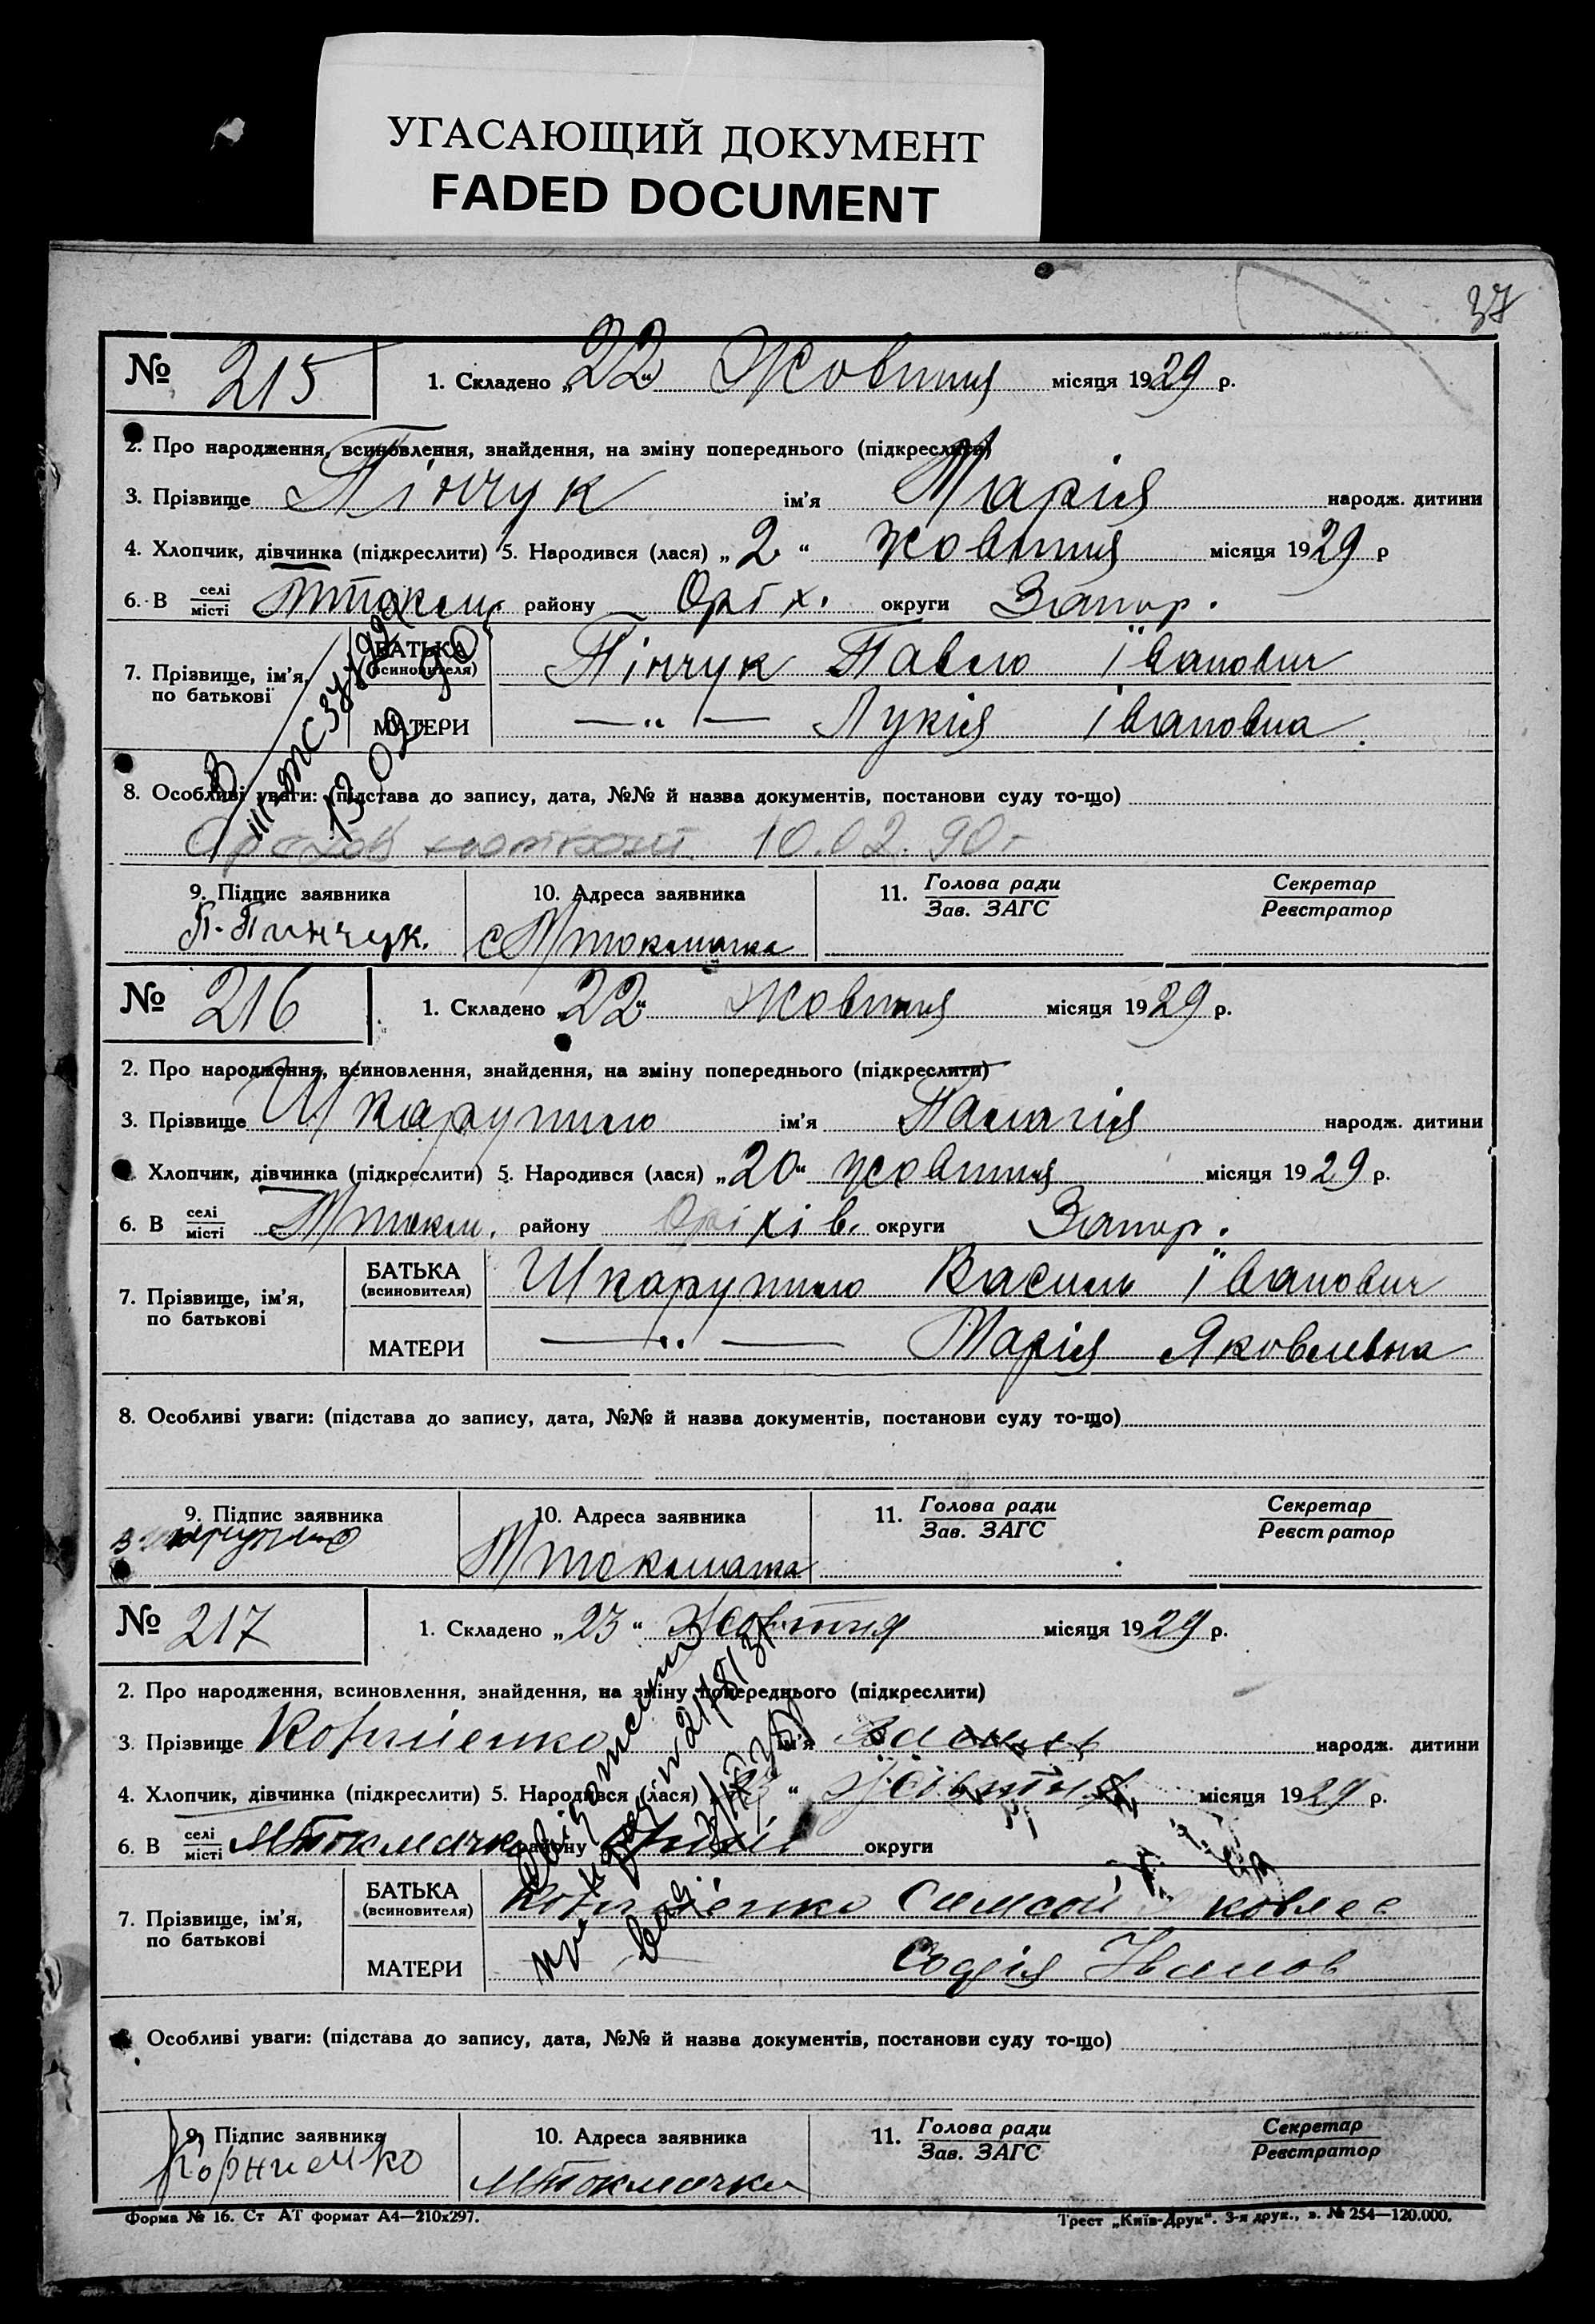 УГАСАЮЩИЙ ДОКУМЕНТ
FADED DOCUMENT
37
№ 215 1. Складено „22“ Жовтня місяця 1929 р.
2. Про народження, всиновлення, знайдення, на зміну попереднього (підкреслити)
3. Прізвище Пінчук ім'я Марія народж. дитини
4. Хлопчик, дівчинка (підкреслити) 5. Народився (лася) „2“ жовтня місяця 1929 р
6. В селі місті Мтокм. району Оріх. округи Запор.
7. Прізвище, ім'я, по батькові
БАТЬКА (всиновителя) Пінчук Павло Іванович
МАТЕРИ —„— Лукія Івановна
8. Особливі уваги: (підстава до запису, дата, №№ й назва документів, постанови суду то-що)
10.02.90г
9. Підпис заявника 10. Адреса заявника 11. Голова ради Зав. ЗАГС Секретар Реєстратор
П. Пинчук. с Мтокмачка
№ 216 1. Складено „22“ Жовтня місяця 1929 р.
2. Про народження, всиновлення, знайдення, на зміну попереднього (підкреслити)
3. Прізвище Шкарупило ім'я Палагія народж. дитини
Хлопчик, дівчинка (підкреслити) 5. Народився (лася) „20“ жовтня місяця 1929 р.
6. В селі місті Мтокм. району Оріхів. округи Запор.
7. Прізвище, ім'я, по батькові
БАТЬКА (всиновителя) Шкарупило Василь Іванович
МАТЕРИ —„— Марія Яковлевна
8. Особливі уваги: (підстава до запису, дата, №№ й назва документів, постанови суду то-що)
9. Підпис заявника 10. Адреса заявника 11. Голова ради Зав. ЗАГС Секретар Реєстратор
Мтокмачка
№ 217 1. Складено „23“ Жовтня місяця 1929 р.
2. Про народження, всиновлення, знайдення, на зміну попереднього (підкреслити)
3. Прізвище Корнієнко ім'я народж. дитини
4. Хлопчик, дівчинка (підкреслити) 5. Народився (лася) „ “ Жовтня місяця 1929 р.
6. В селі місті МТокмачка району округи
7. Прізвище, ім'я, по батькові
БАТЬКА (всиновителя) Корнієнко Самсон
МАТЕРИ Софія Иванов
Особливі уваги: (підстава до запису, дата, №№ й назва документів, постанови суду то-що)
9. Підпис заявника 10. Адреса заявника 11. Голова ради Зав. ЗАГС Секретар Реєстратор
Корниенко МТокмачка
Форма № 16. Ст АТ формат А4—210х297. Трест „Київ-Друк“. 3-я друк., з. № 254—120.000.